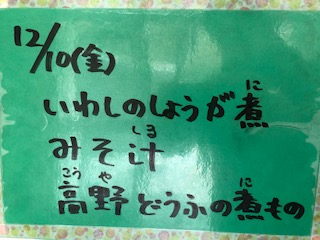 12/10(金)
いわしのしょうが煮
に
みそ汁
しる
高野どうふの煮もの
こう や に